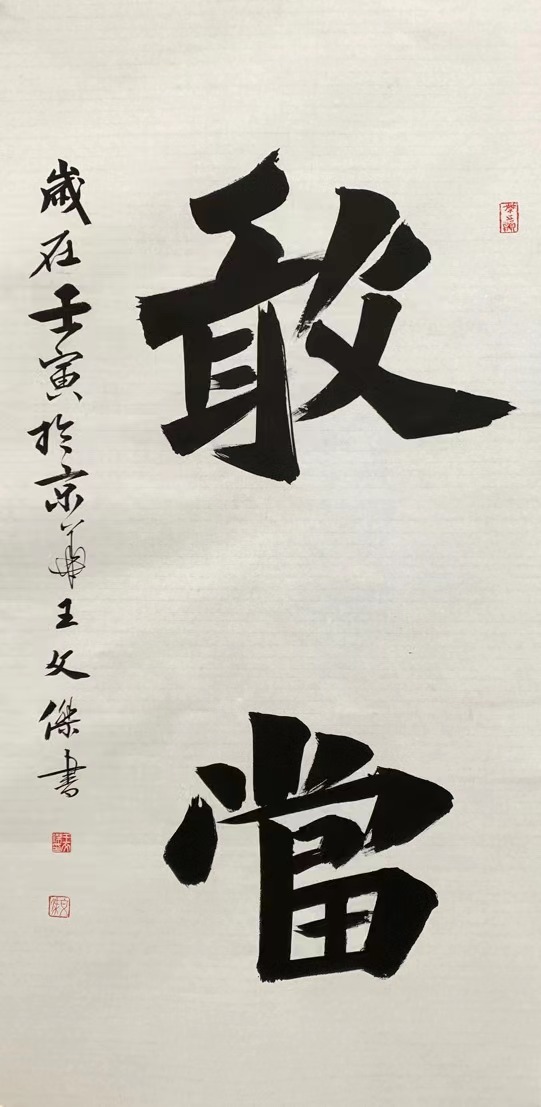 敢當
歲在壬寅於京華王文傑書